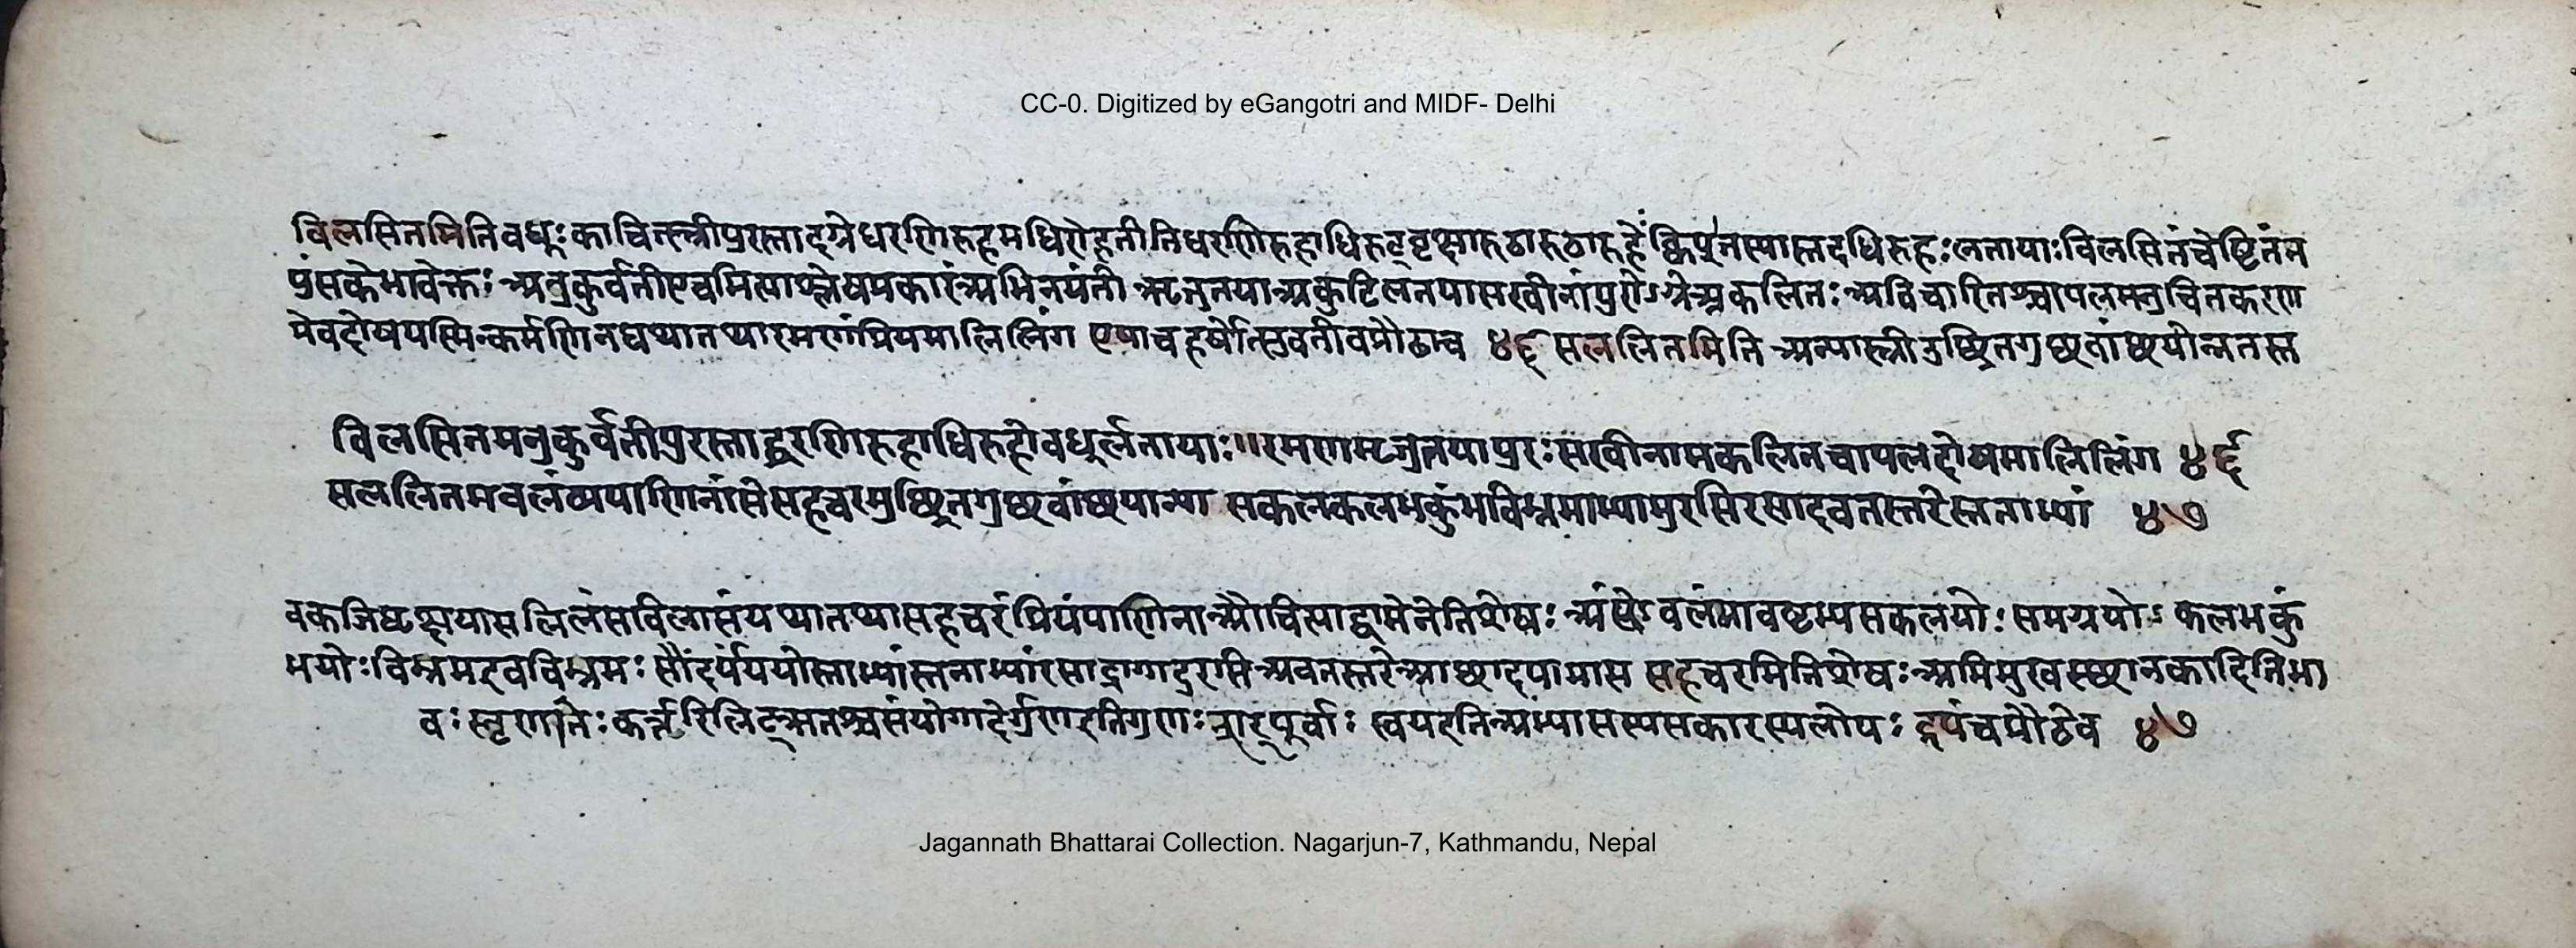 CC-0. Digitized by eGangotri and MIDF- Delhi
विलसितमिति वधूः काचित्स्त्री पुरस्तादग्रे धरणिरुहमधिरोहतीति धरणिरुहाधिरुट् वृक्षारूढा
पुंसके भावे क्तः अनुकुर्वती एवमित्याश्लेषप्रकारं अभिनयंती ऋजुतया अकुटिलतया सखीनां पुरोऽग्रे अकलितः अविचारितश्चापलमनुचितकरण
मेव दोषो यस्मिन्कर्मणि तद्यथा तथा रमणं प्रियमालिलिंग एषा च हर्षोत्सुकवतीव प्रौढा च ४६ सललितमिति अन्या स्त्री
विलसितमनुकुर्वती पुरस्ताद्धरणिरुहाधिरुहो वधूर्लतायाः ॥ रमणमृजुतया पुरः सखीनामकलितचापलदोषमालिलिंग ४६
सललितमवलंब्य पाणिनांसे सहचरमुच्छ्रितगुच्छवांछयान्या सकलकलभकुंभविभ्रमाभ्यामुरसि रसादवतस्तरे स्तनाभ्यां ४७
सलिलं सविलासं यथा तथा सहचरं प्रियं पाणिना औचित्याद्वामेनेति शेषः अंसे अवलंब्यावष्टभ्य सकलयोः समग्रयोः कलभकुं
भयोः विभ्रम इव विभ्रमः सौंदर्यं ययोस्ताभ्यां स्तनाभ्यां रसाद्रागादुरसि अवतस्तरे आच्छादयामास सहचरमिति शेषः अभिमुखस्छानकादिति भा
वः स्तृणातेः कर्त्तरि लिट् ऋतश्च संयोगादेर्गुण इति गुणः शर्पूर्वाः खय इति अभ्यासस्य सकारस्य लोपः इयं च प्रौढेव ४७
Jagannath Bhattarai Collection. Nagarjun-7, Kathmandu, Nepal